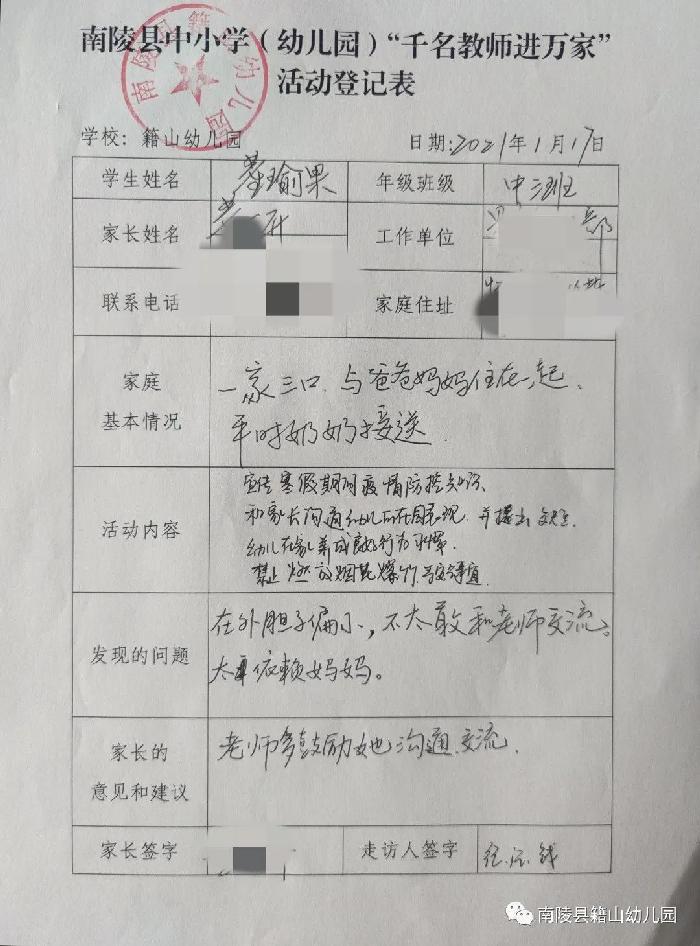 南陵县中小学（幼儿园）“千名教师进万家”
活动登记表
南陵县籍山幼儿园
学校：籍山幼儿园 日期：2021年1月17日
学生姓名 瑜果 年级班级 中三班
家长姓名 工作单位
联系电话 家庭住址
家庭
基本情况
一家三口，与爸爸妈妈住在一起，
平时奶奶接送
活动内容
宣传寒假期间疫情防控知识
和家长沟通幼儿所在园表现，并提出
幼儿在家养成良好行为习惯，
禁止燃放烟花爆竹
发现的问题
在外胆子偏小，不太敢和老师交流，
太依赖妈妈。
家长的
意见和建议
老师多鼓励她沟通交流．
家长签字 走访人签字
南陵县籍山幼儿园